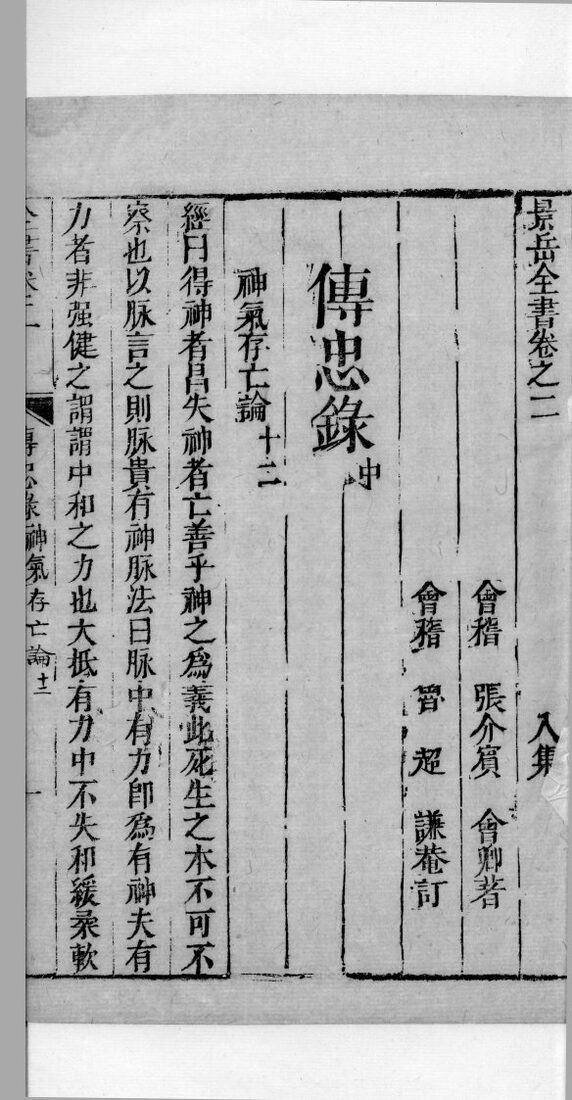 景岳全書卷之二 入集
會稽 張介賓 會卿著
會稽 魯 超 謙菴訂
傳忠錄 中
神氣存亡論 十二
經曰得神者昌失神者亡善乎神之爲義此死生之本不可不
察也以脉言之則脉貴有神脉法曰脉中有力卽爲有神夫有
力者非强健之謂謂中和之力也大抵有力中不失和緩柔軟
全書卷之二 傳忠錄 神氣存亡論 十二 一